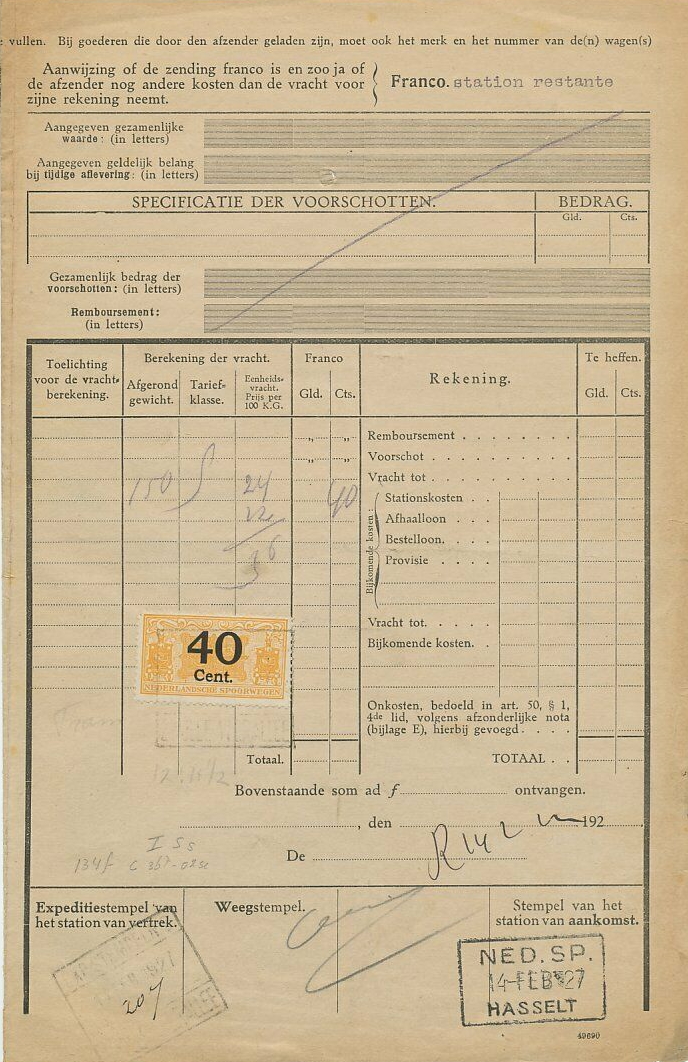 vullen. Bij goederen die door den afzender geladen zijn, moet ook het merk en het nummer van de(n) wagen(s)
Aanwijzing of de zending franco is en zoo ja of
de afzender nog andere kosten dan de vracht voor
zijne rekening neemt.
Franco. station restante
Aangegeven gezamenlijke
waarde: (in letters)
Aangegeven geldelijk belang
bij tijdige aflevering: (in letters)
SPECIFICATIE DER VOORSCHOTTEN.
BEDRAG.
Gld. Cts.
Gezamenlijk bedrag der
voorschotten: (in letters)
Remboursement:
(in letters)
Toelichting
voor de vracht-
berekening.
Berekening der vracht.
Afgerond
gewicht.
Tarief-
klasse.
Eenheids-
vracht.
Prijs per
100 K.G.
Franco
Gld. Cts.
Rekening.
Te heffen.
Gld. Cts.
150 24 40
12
36
Remboursement
Voorschot
Vracht tot
Bijkomende kosten:
Stationskosten
Afhaalloon
Bestelloon.
Provisie
Vracht tot.
Bijkomende kosten.
40
Cent.
NEDERLANDSCHE SPOORWEGEN
Onkosten, bedoeld in art. 50, § 1,
4de lid, volgens afzonderlijke nota
(bijlage E), hierbij gevoegd.
Totaal.
TOTAAL
Bovenstaande som ad f ontvangen.
, den 192
De
Expeditiestempel van
het station van vertrek.
Weegstempel.
Stempel van het
station van aankomst.
207
NED. SP.
14 FEB 27
HASSELT
49690